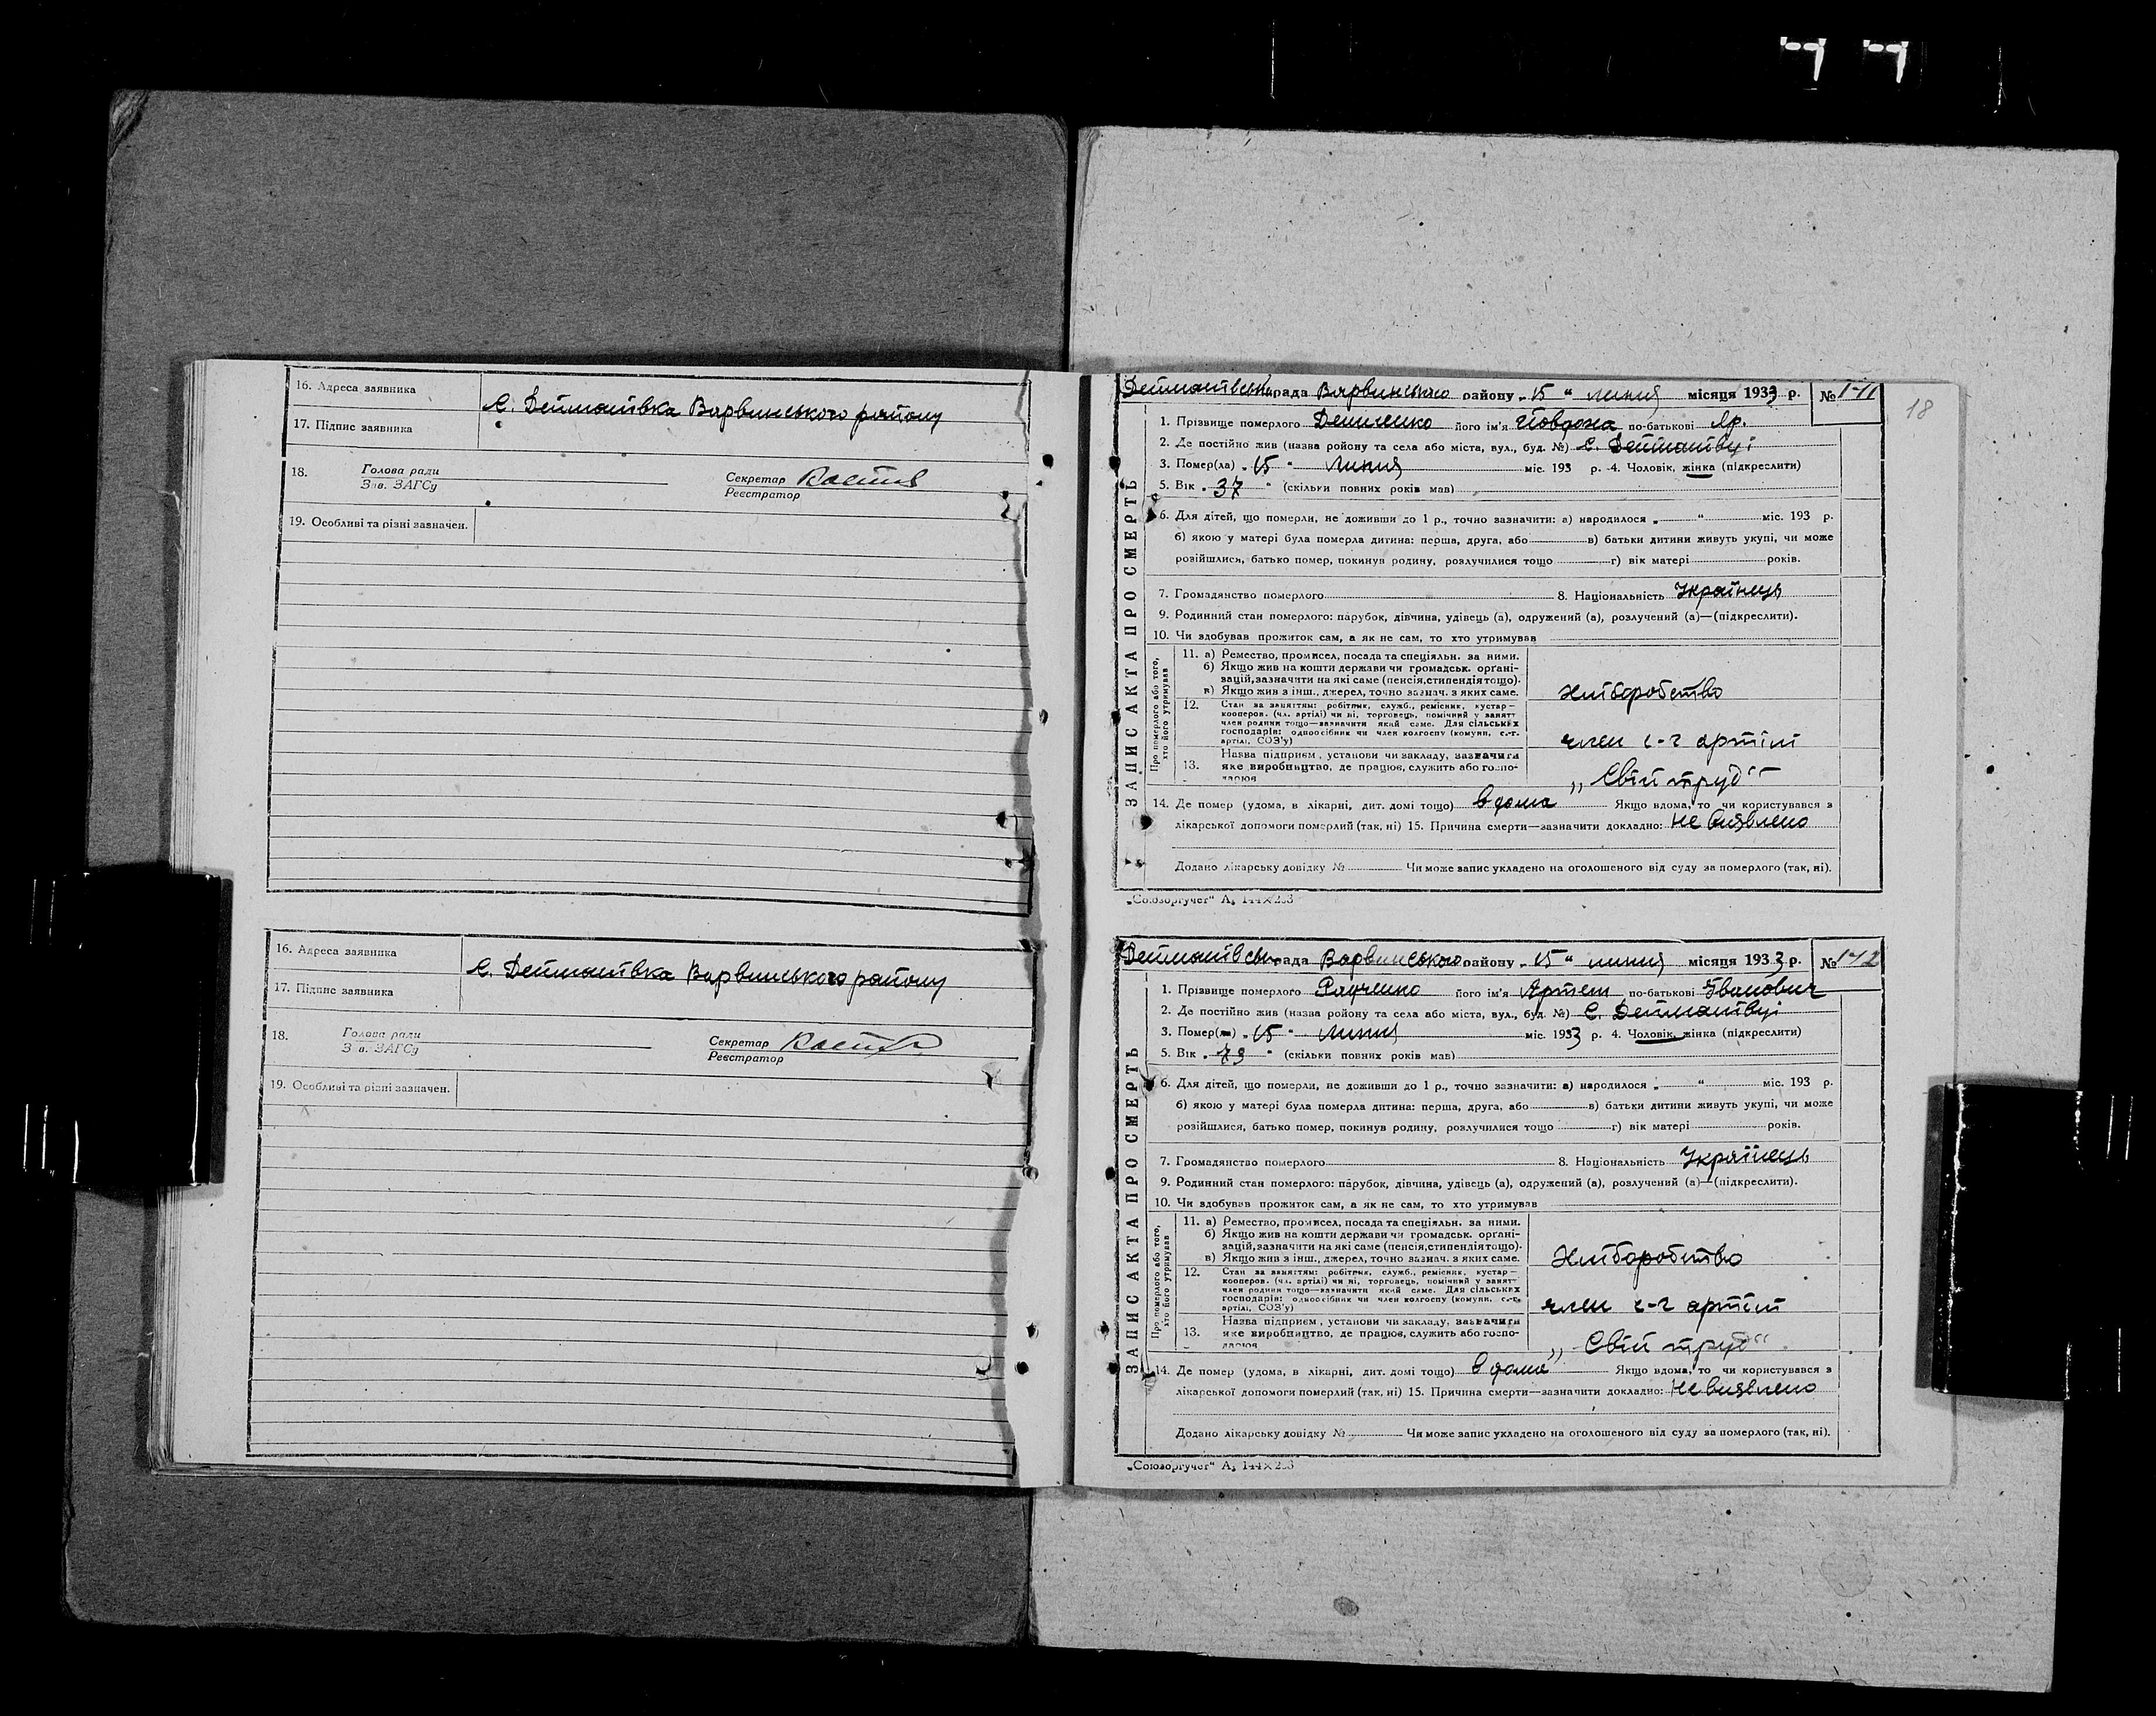 16. Адреса заявника
с. Дейманівка Варвинського району
17. Підпис заявника
18. Голова ради
Зав. ЗАГСу
Секретар
Реєстратор
19. Особливі та різні зазначен.
16. Адреса заявника
с. Дейманівка Варвинського району
17. Підпис заявника
18. Голова ради
Зав. ЗАГСу
Секретар
Реєстратор
19. Особливі та різні зазначен.
18
ЗАПИС АКТА ПРО СМЕРТЬ
Дейманівська рада Варвинського району „15“ липня місяця 1933 р. № 141
1. Прізвище померлого його ім'я по-батькові
2. Де постійно жив (назва району та села або міста, вул., буд. №) с. Дейманівці
3. Помер(ла) „15“ липня міс. 193 р. 4. Чоловік, жінка (підкреслити)
5. Вік „37“ (скільки повних років мав)
6. Для дітей, що померли, не доживши до 1 р., точно зазначити: а) народилося „ “ міс. 193 р.
б) якою у матері була померла дитина: перша, друга, або в) батьки дитини живуть укупі, чи може
розійшлися, батько помер, покинув родину, розлучилися тощо г) вік матері років.
7. Громадянство померлого 8. Національність Українець
9. Родинний стан померлого: парубок, дівчина, удівець (а), одружений (а), розлучений (а)—(підкреслити).
10. Чи здобував прожиток сам, а як не сам, то хто утримував
Про померлого або того, хто його утримував
11. а) Ремество, промисел, посада та спеціяльн. за ними.
б) Якщо жив на кошти держави чи громадськ. орґані-
зацій, зазначити на які саме (пенсія, стипендія тощо).
в) Якщо жив з інш., джерел, точно зазнач. з яких саме.
хліборобство
12. Стан за заняттям: робітник, служб., ремісник, кустар—
кооперов. (чл. артілі) чи ні, торговець, помічний у занятт
член родини тощо—зазначити який саме. Для сільських
господарів: одноосібник чи член колгоспу (комуни, с.-г.
артілі, СОЗ'у)
член с-г артілі
13. Назва підприєм., установи чи закладу, зазначити
яке виробництво, де працює, служить або госпо-
дарює
„Свій труд“
14. Де помер (удома, в лікарні, дит. домі тощо) вдома Якщо вдома, то чи користувався з
лікарської допомоги померлий (так, ні) 15. Причина смерти—зазначити докладно: не виявлено
Додано лікарську довідку № Чи може запис укладено на оголошеного від суду за померлого (так, ні).
„Союзоргучет“
ЗАПИС АКТА ПРО СМЕРТЬ
Дейманівська рада Варвинського району „15“ липня місяця 1933 р. № 142
1. Прізвище померлого Радченко його ім'я Артем по-батькові Іванович
2. Де постійно жив (назва району та села або міста, вул., буд. №) с. Дейманівці
3. Помер(ла) „15“ липня міс. 1933 р. 4. Чоловік, жінка (підкреслити)
5. Вік „73“ (скільки повних років мав)
6. Для дітей, що померли, не доживши до 1 р., точно зазначити: а) народилося „ “ міс. 193 р.
б) якою у матері була померла дитина: перша, друга, або в) батьки дитини живуть укупі, чи може
розійшлися, батько помер, покинув родину, розлучилися тощо г) вік матері років.
7. Громадянство померлого 8. Національність Українець
9. Родинний стан померлого: парубок, дівчина, удівець (а), одружений (а), розлучений (а)—(підкреслити).
10. Чи здобував прожиток сам, а як не сам, то хто утримував
Про померлого або того, хто його утримував
11. а) Ремество, промисел, посада та спеціяльн. за ними.
б) Якщо жив на кошти держави чи громадськ. орґані-
зацій, зазначити на які саме (пенсія, стипендія тощо).
в) Якщо жив з інш., джерел, точно зазнач. з яких саме.
Хліборобство
12. Стан за заняттям: робітник, служб., ремісник, кустар—
кооперов. (чл. артілі) чи ні, торговець, помічний у занятт
член родини тощо—зазначити який саме. Для сільських
господарів: одноосібник чи член колгоспу (комуни, с.-г.
артілі, СОЗ'у)
член с-г артілі
13. Назва підприєм., установи чи закладу, зазначити
яке виробництво, де працює, служить або госпо-
дарює
„Свій труд“
14. Де помер (удома, в лікарні, дит. домі тощо) вдома Якщо вдома, то чи користувався з
лікарської допомоги померлий (так, ні) 15. Причина смерти—зазначити докладно: не виявлено
Додано лікарську довідку № Чи може запис укладено на оголошеного від суду за померлого (так, ні).
„Союзоргучет“